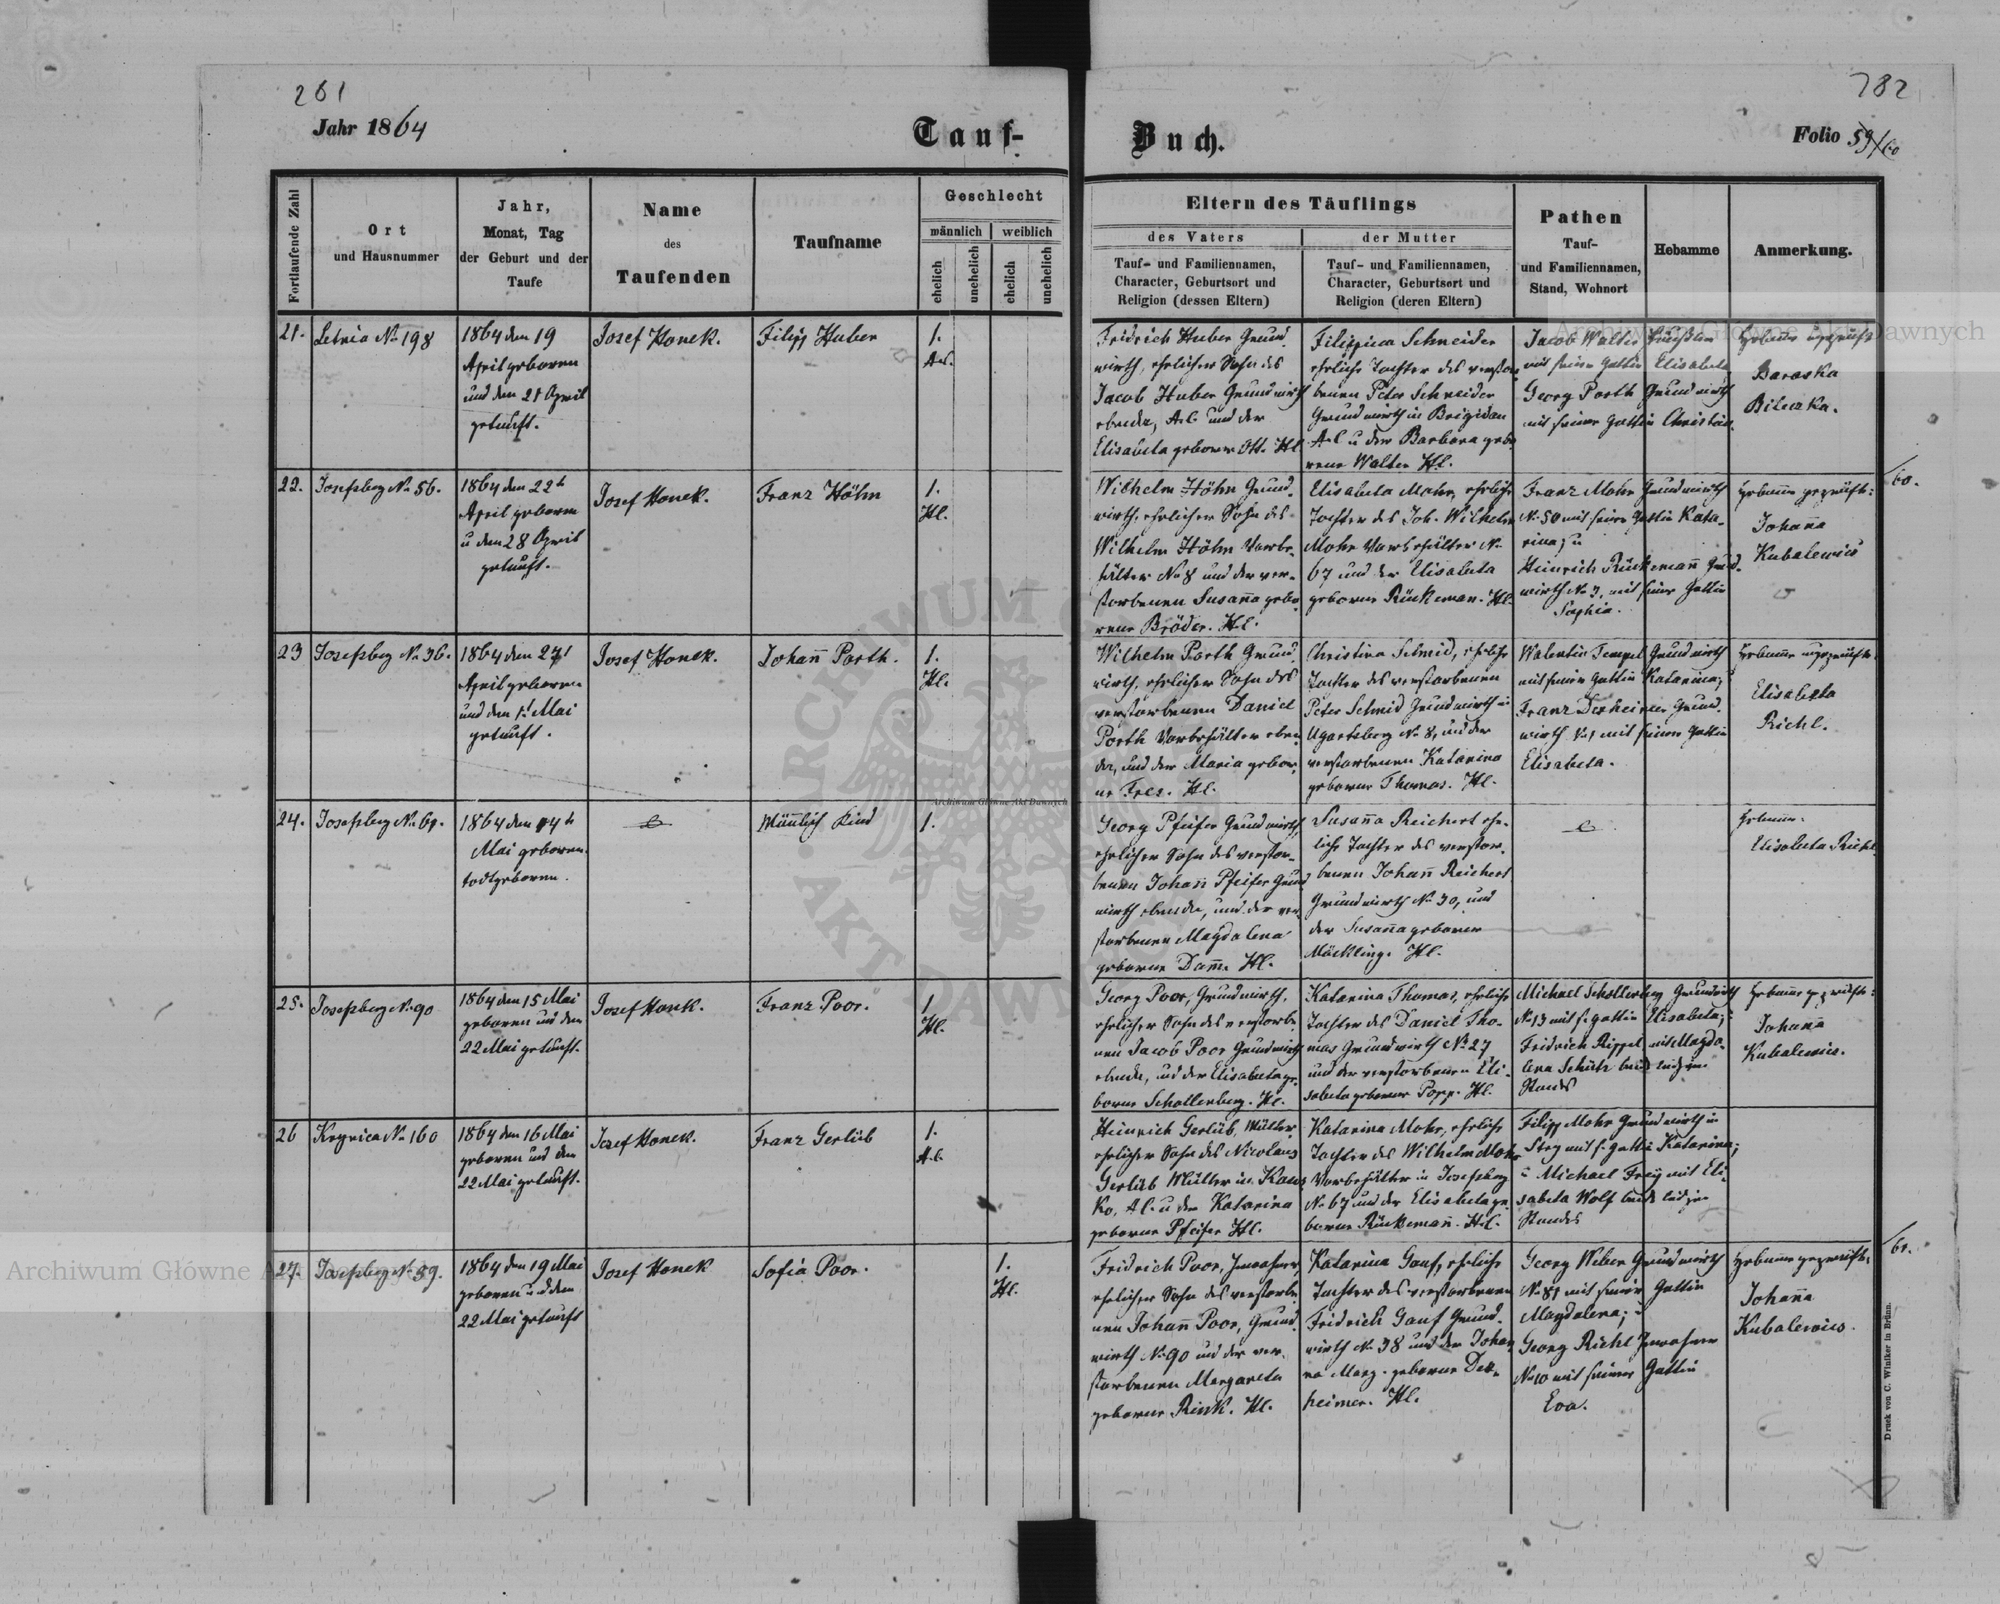 261
782
Jahr 1864
Tauf-
Buch.
Folio 59/60
Fortlaufende Zahl
Ort
und Hausnummer
Jahr,
Monat, Tag
der Geburt und der
Taufe
Name
des
Taufenden
Taufname
Geschlecht
männlich
weiblich
ehelich
unehelich
ehelich
unehelich
Eltern des Täuflings
des Vaters
Tauf- und Familiennamen,
Character, Geburtsort und
Religion (dessen Eltern)
der Mutter
Tauf- und Familiennamen,
Character, Geburtsort und
Religion (deren Eltern)
Pathen
Tauf-
und Familiennamen,
Stand, Wohnort
Hebamme
Anmerkung.
21.
Letnia No 198
1864 den 19
April geboren
und den 21 April
getauft.
Josef Honek.
Filipp Huber
1.
A.C.
Fridrich Huber Grund-
wirth, ehelicher Sohn des
Jacob Huber Grundwirth
ebenda, A.C. und der
Elisabeta geborne Ott. H.C.
Filippina Schneider
eheliche Tochter des verstor-
benen Peter Schneider
Grundwirth in Brigidau
A.C. u der Barbara gebo-
rene Walter H.C.
Jacob Walter
mit seiner Gattin Elisabeta
Georg Porth Grundwirth
mit seiner Gattin Christin.
Hebamme ungeprüft
Baraska
Bilecka.
22.
Josefsberg No 56.
1864 den 22t
April geboren
u den 28 April
getauft.
Josef Honek.
Franz Höhn
1.
H.C.
Wilhelm Höhn Grund-
wirth, ehelicher Sohn des
Wilhelm Höhn Vorbe-
hälter No 8 und der ver-
storbenen Susanna gebo-
rene Bröder. H.C.
Elisabeta Mohr, eheliche
Tochter des Joh. Wilhelm
Mohr Vorbehälter No
67 und der Elisabeta
geborne Rückeman. H.C.
Franz Mohr Grundwirth
No 50 mit seiner Gattin Kata-
rina; u
Heinrich Rückemann Grund-
wirth No 3, mit seiner Gattin
Sophia.
Hebamme geprüft:
Johanna
Kubalewics
60.
23
Josefsberg No 36.
1864 den 27t
April geboren
und den 1t Mai
getauft.
Josef Honek.
Johann Porth.
1.
H.C.
Wilhelm Porth Grund-
wirth, ehelicher Sohn des
verstorbenen Daniel
Porth Vorbehälter eben-
da, und der Maria gebor-
ne Frey. H.C.
Christina Schmid, eheliche
Tochter des verstorbenen
Peter Schmid Grundwirth in
Ugartsberg No 8, und der
verstorbenen Katarina
geborne Thomas. H.C.
Walentin Tempel Grundwirth
mit seiner Gattin Katarina;
Franz Dexheimer Grund-
wirth No 1 mit seiner Gattin
Elisabeta.
Hebamme ungeprüft
Elisabeta
Richl.
24.
Josefsberg No 61.
1864 den 14t
Mai geboren.
todtgeboren.
Männlich Kind
1.
Georg Pfeifer Grundwirth,
ehelicher Sohn des verstor-
benen Johann Pfeifer Grund-
wirth ebenda, und der ver-
storbenen Magdalena
geborne Damm. H.C.
Susanna Reichert ehe-
liche Tochter des verstor-
benen Johann Reichert
Grundwirth No 30, und
der Susanna geborne
Möckling. H.C.
Hebamme.
Elisabeta Richl
25.
Josefsberg No 90
1864 den 15 Mai
geboren und den
22 Mai getauft.
Josef Honek.
Franz Poor.
1.
H.C.
Georg Poor, Grundwirth,
ehelicher Sohn des verstorbe-
nen Jacob Poor Grundwirth
ebenda, und der Elisabeta ge-
borne Schollenberg. H.C.
Katarina Thomas, eheliche
Tochter des Daniel Tho-
mas Grundwirth No 27
und der verstorbenen Eli-
sabeta geborne Popp. H.C.
Michael Schollenberg Grundwirth
No 13 mit s. Gattin Elisabeta;
Fridrich Rippel mit Magda-
lena Schütz beide ledigen
Standes
Hebamme geprüft:
Johanna
Kubalewics.
26
Krynica No 160
1864 den 16 Mai
geboren und den
22 Mai getauft.
Josef Honek.
Franz Gerlüb
1.
A.C.
Heinrich Gerlüb, Müller,
ehelicher Sohn des Nicolaus
Gerlüb Müller in
A.C. u der Katarina
geborne Pfeifer H.C.
Katarina Mohr, eheliche
Tochter des Wilhelm Mohr
Vorbehälter in Josefsberg
No 67 und der Elisabeta ge-
borne Rückemann. H.C.
Filipp Mohr Grundwirth in
Stry mit s. Gattin Katarina;
u Michael Frey mit Eli-
sabeta Wolf beide ledigen
Standes
27.
Josefsberg No 59.
1864 den 19 Mai
geboren und den
22 Mai getauft
Josef Honek
Sofia Poor.
1.
H.C.
Fridrich Poor, Inwohner,
ehelicher Sohn des verstorbe-
nen Johann Poor, Grund-
wirth No 90 und der ver-
storbenen Margareta
geborne Rink. H.C.
Katarina Gauf, eheliche
Tochter des verstorbenen
Fridrich Gauf Grund-
wirth No 38 und der Johan-
na Marg. geborne Dex-
heimer. H.C.
Georg Weber Grundwirth
No 81 mit seiner Gattin
Magdalena; u
Georg Richl Inwohner
No 10 mit seiner Gattin
Eva.
Hebamme geprüft.
Johanna
Kubalewics.
61.
Druck von C. Winiker in Brünn.
Archiwum Główne Akt Dawnych
Archiwum Główne Akt Dawnych
Archiwum Główne A
ARCHIWUM
AKT DAWN